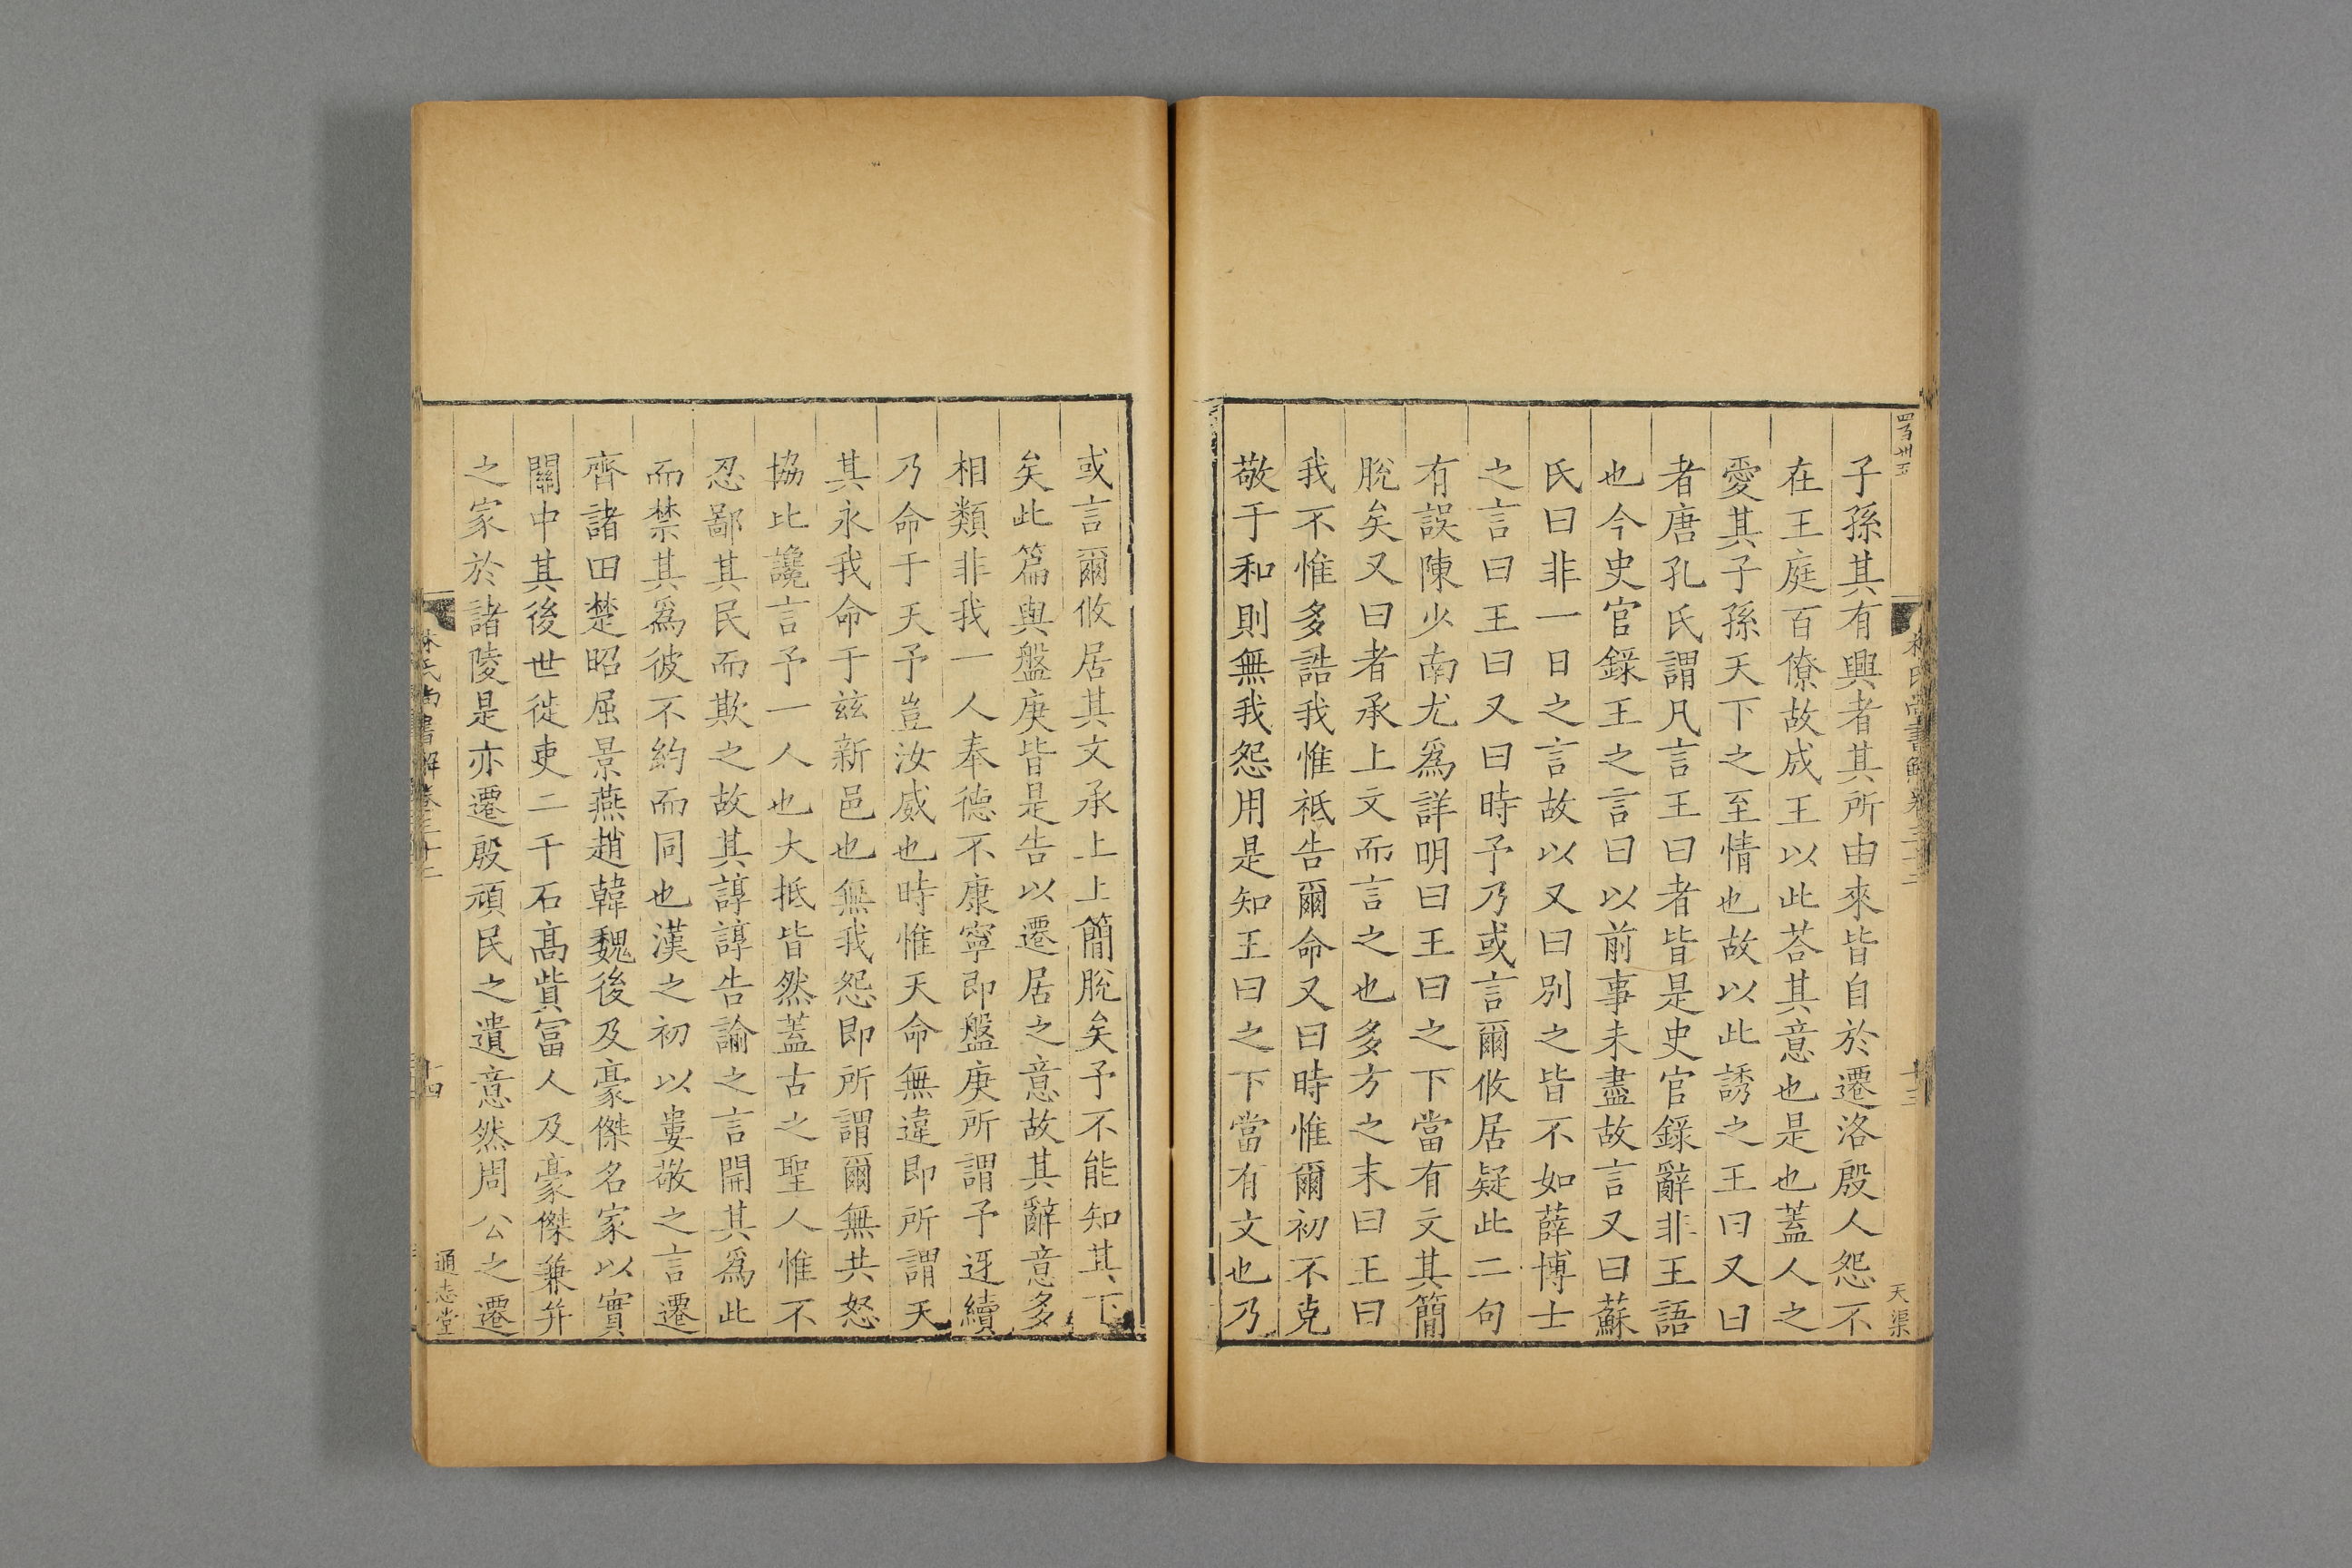 子孫其有興者其所由來皆自於遷洛殷人怨不
在王庭百僚故成王以此荅其意也是也蓋人之
愛其子孫天下之至情也故以此誘之王曰又曰
者唐孔氏謂凡言王曰者皆是史官錄辭非王語
也今史官錄王之言曰以前事未盡故言又曰蘇
氏曰非一日之言故以又曰別之皆不如薛博士
之言曰王曰又曰時予乃或言爾攸居疑此二句
有誤陳少南尤爲詳明曰王曰之下當有文其簡
脫矣又曰者承上文而言之也多方之末曰王曰
我不惟多誥我惟祗告爾命又曰時惟爾初不克
敬于和則無我怨用是知王曰之下當有文也乃
或言爾攸居其文承上上簡脫矣予不能知其下
矣此篇與盤庚皆是告以遷居之意故其辭意多
相類非我一人奉德不康寧即盤庚所謂予迓續
乃命于天予豈汝威也時惟天命無違即所謂天
其永我命于兹新邑也無我怨即所謂爾無共怒
協比讒言予一人也大抵皆然蓋古之聖人惟不
忍鄙其民而欺之故其諄諄告諭之言開其爲此
而禁其爲彼不約而同也漢之初以婁敬之言遷
齊諸田楚昭屈景燕趙韓魏後及豪傑名家以實
關中其後世徙吏二千石高貲冨人及豪傑兼并
之家於諸陵是亦遷殷頑民之遺意然周公之遷
四百卅五
林氏尚書解卷三十二
十三
天渠
林氏尚書解卷三十二
十四
通志堂